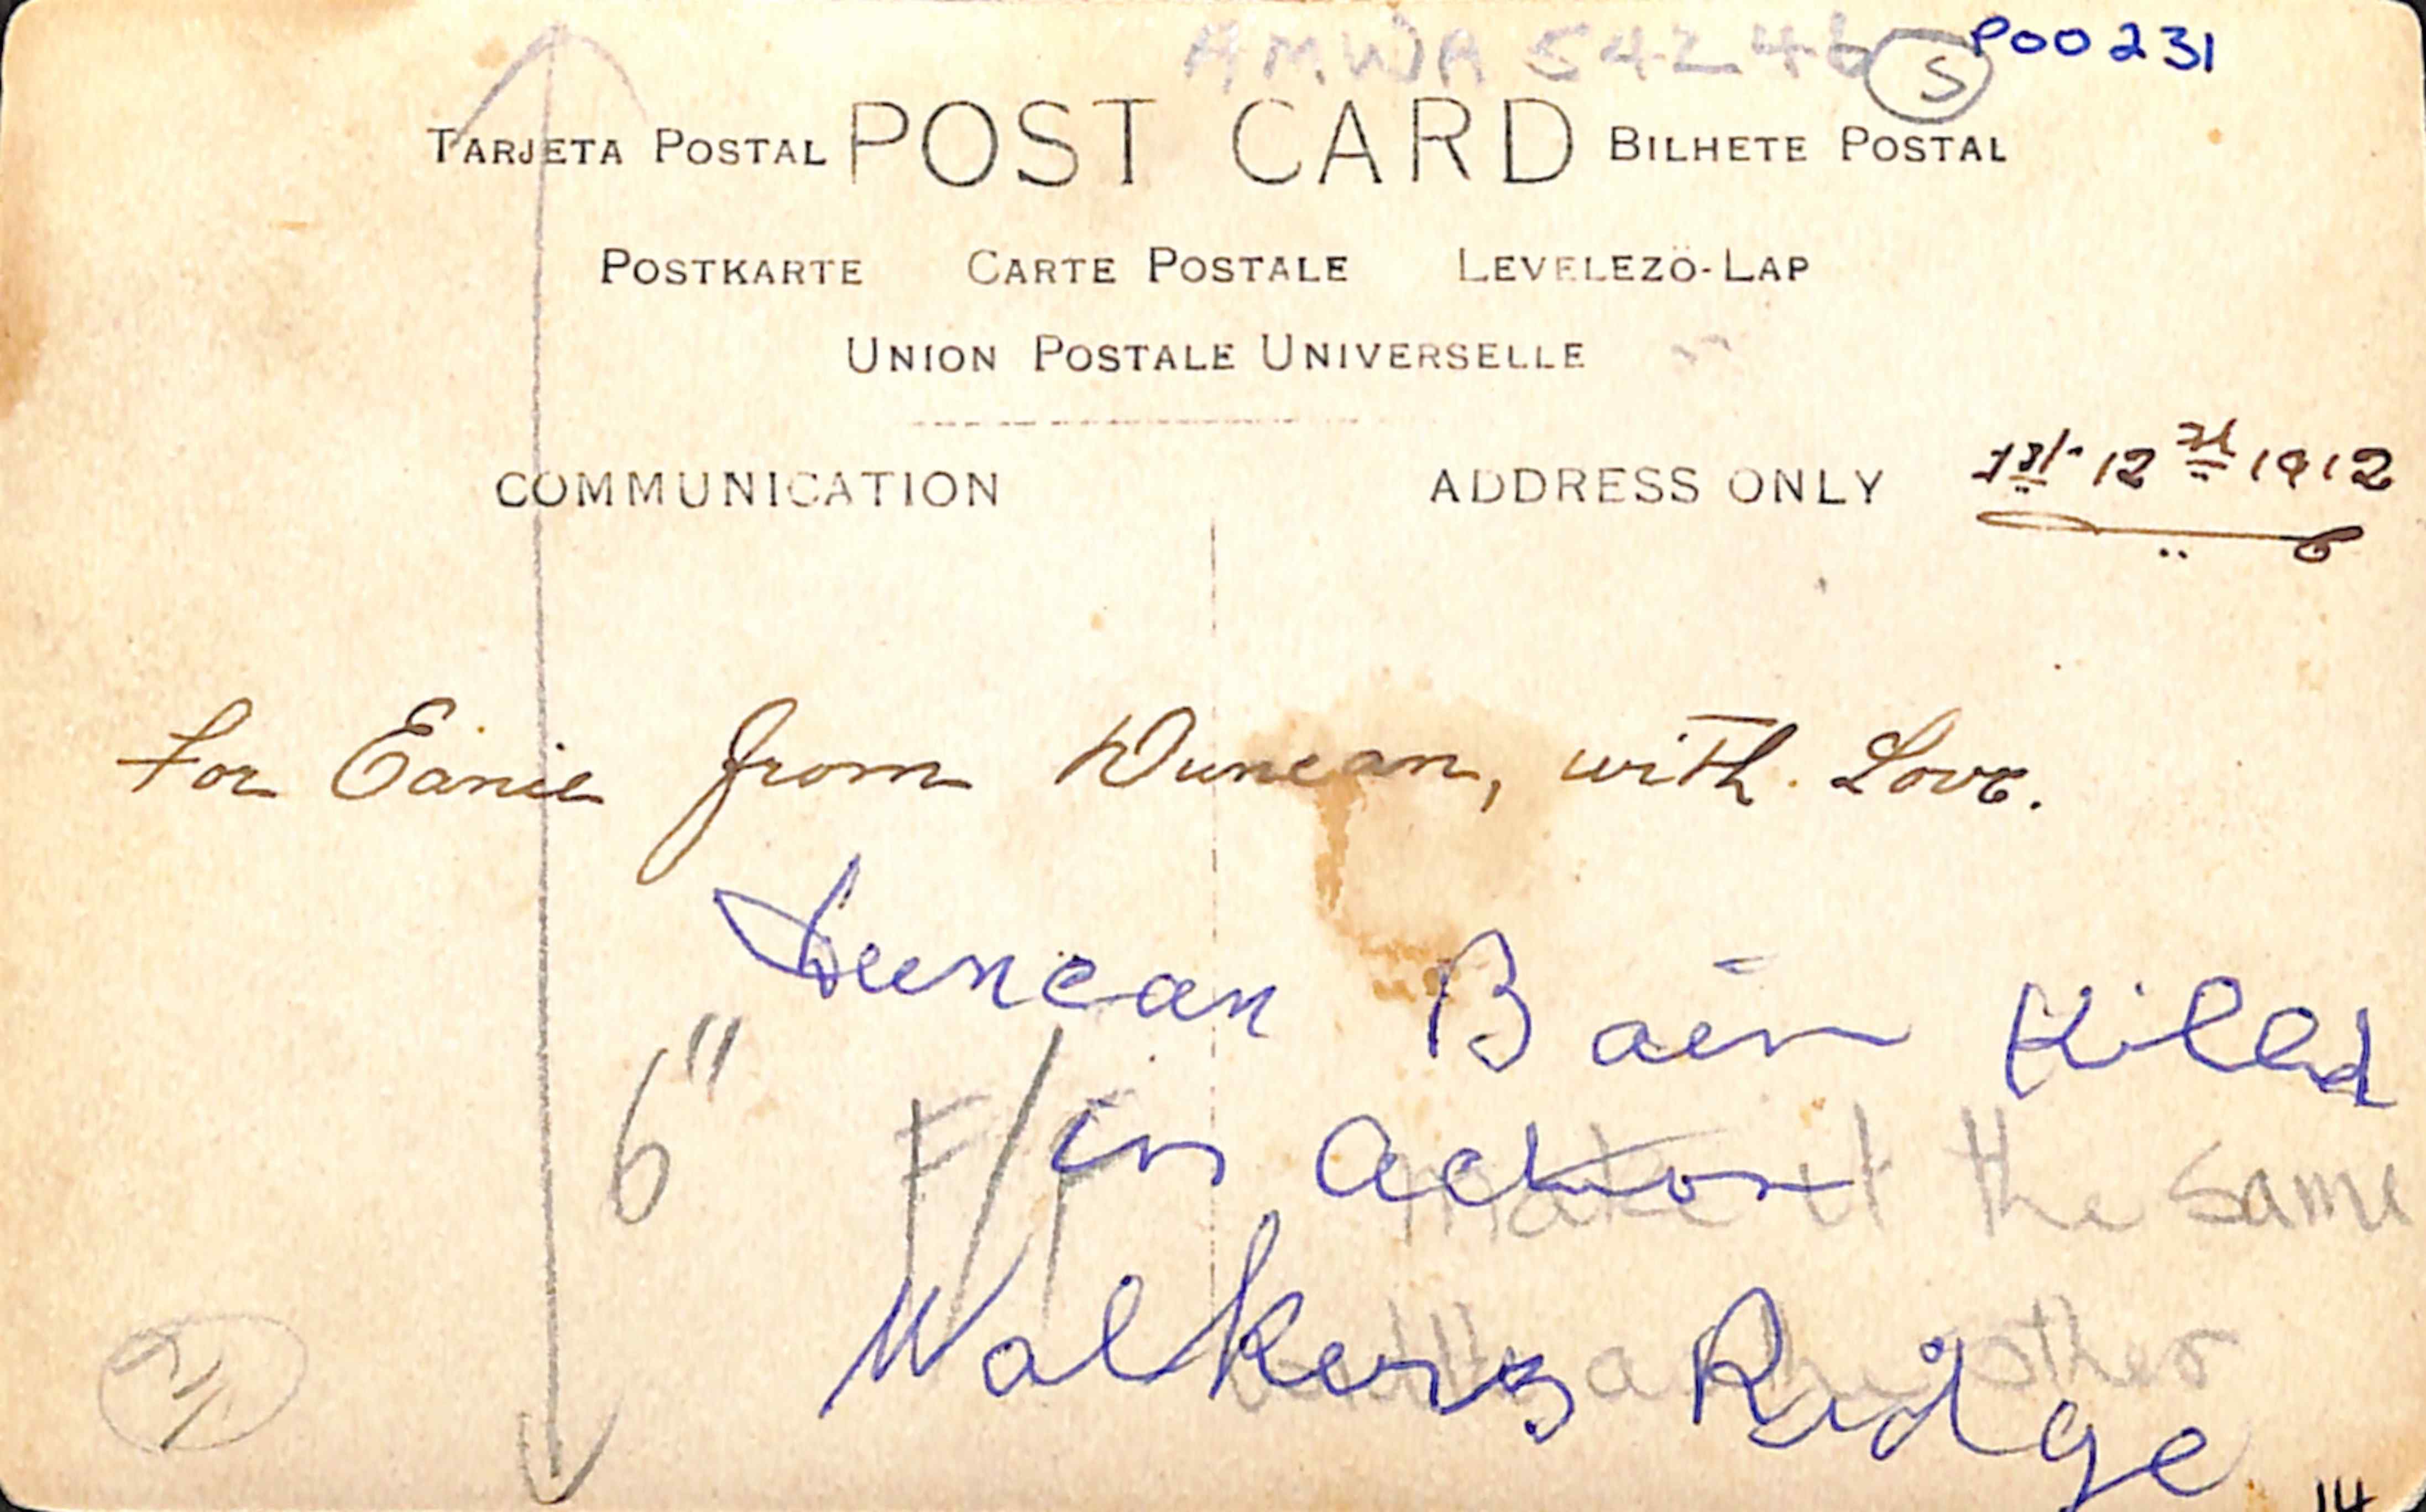 AMWA 54246 S P00231
TARJETA POSTAL POST CARD BILHETE POSTAL
POSTKARTE CARTE POSTALE LEVELEZÖ-LAP
UNION POSTALE UNIVERSELLE
COMMUNICATION ADDRESS ONLY
1st 12th 1912
For Eanie from Duncan, with Love.
Duncan Bain Killed
6" F/P in action
make it the same
Walkers Ridge
as the other
14